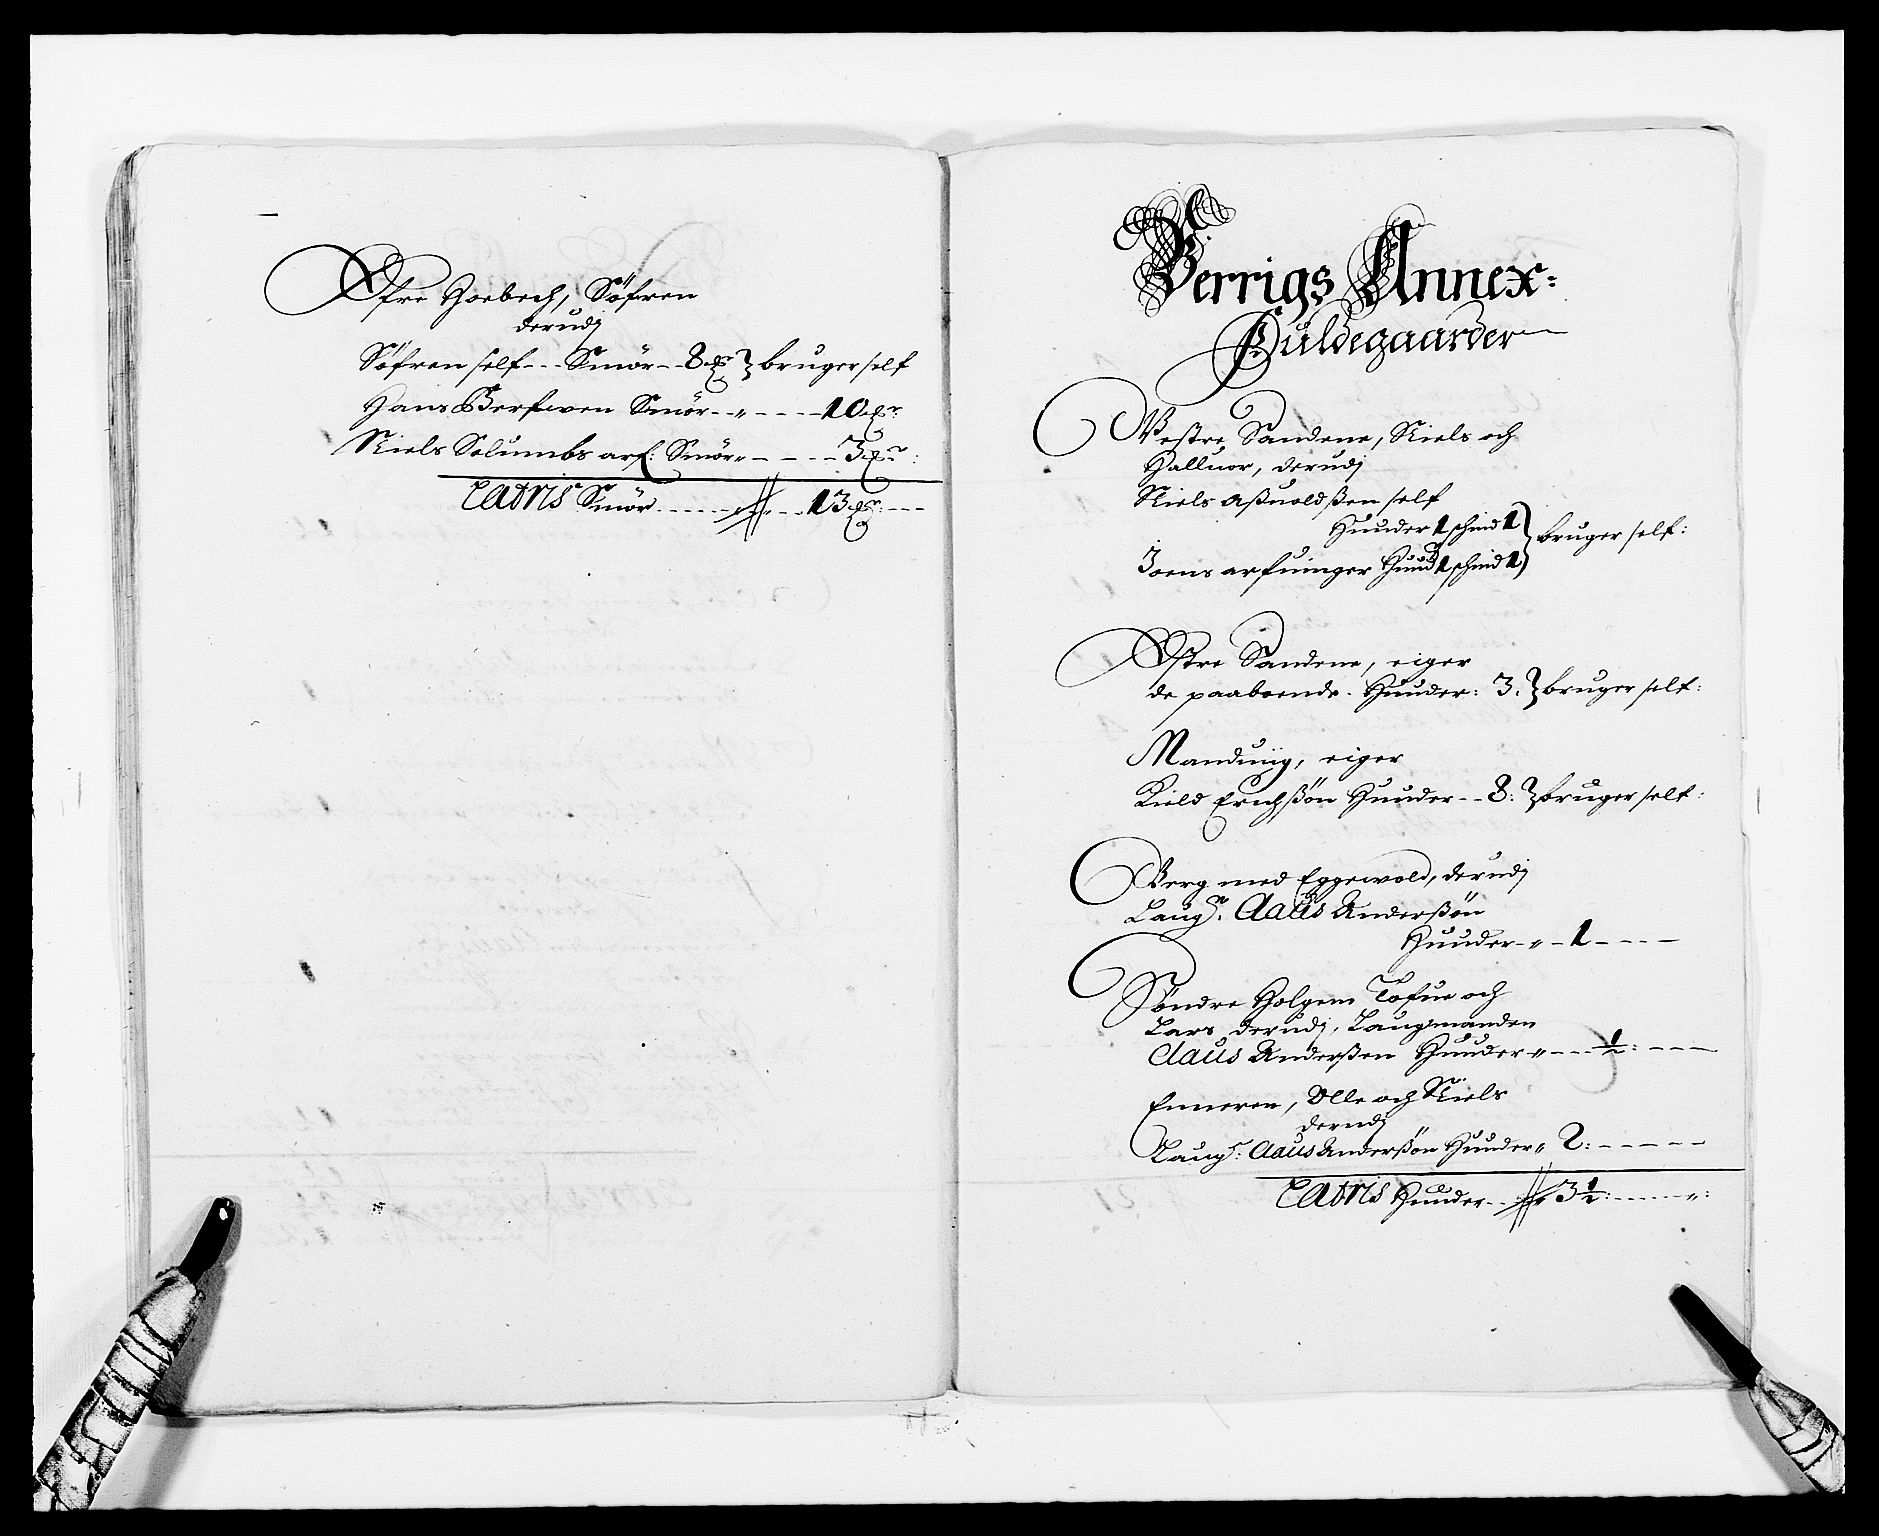 Øfre Hoebech, Söfren
derudj
Söfren self --- Smör -- 8 bruger self
Hans Smör -- " - - - - 10
Niels Solumbs arf: Smör " - - - - 3
Latris Smör - - - - - - 13 - - -
Verrigs Annex=
Fuldegaarder
Vestre Sandene, Niels och
Halluor, derudj
Niels Aßuoldßen self
Huuder 1 schind 1 bruger self:
Joens arfuinger Huud 1 schind 1
Østre Sandene, eiger
de paaboende. Huuder: 3. bruger self:
eiger
Kield Erichßøn Huuder -- 8: bruger self:
Berg med Eggewold, derudj
Laugm: Claus Anderßön
Huuder - " - 1 - - - -
Söndre Holgem Tofue och
Lars, derudj, Laugmanden
Claus Anderßen Huuder " - - - ½: - - - -
Enneren, Olle och Niels
derudj
Laugm: Claus Anderßön Huuder " 2: - - - - -
Latris Huuder - - 3½: - - - - - ":